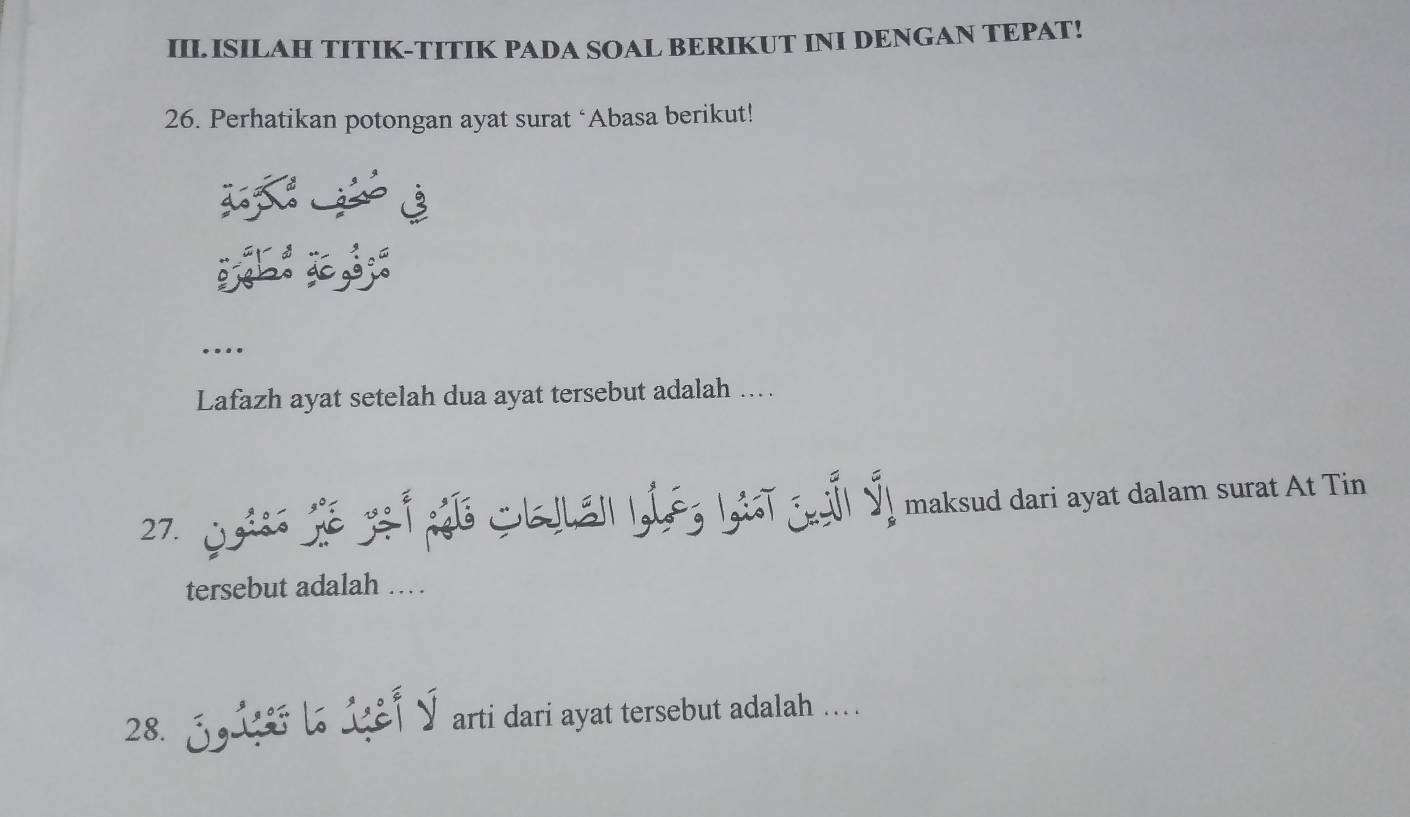 III. ISILAH TITIK-TITIK PADA SOAL BERIKUT INI DENGAN TEPAT!
26. Perhatikan potongan ayat surat ‘Abasa berikut!
فِي صُحُفٍ مُّكَرَّمَةٍ
مَّرْفُوعَةٍ مُّطَهَّرَةٍ
....
Lafazh ayat setelah dua ayat tersebut adalah ….
27. إِلَّا الَّذِينَ آمَنُوا وَعَمِلُوا الصَّالِحَاتِ فَلَهُمْ أَجْرٌ غَيْرُ مَمْنُونٍ maksud dari ayat dalam surat At Tin
tersebut adalah ….
28. لَا أَعْبُدُ مَا تَعْبُدُونَ arti dari ayat tersebut adalah ….